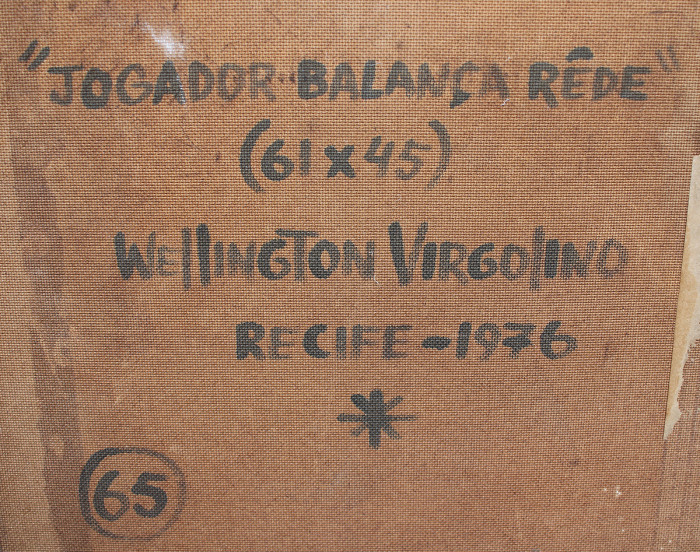 "JOGADOR BALANÇA RÊDE"
(61x45)
WellINGTON VIRGOlINO
RECIFE-1976
*
65